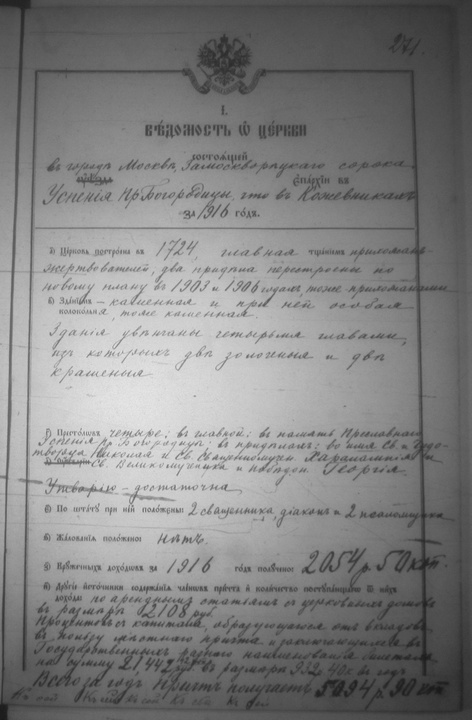 271.
І.
ВѢДОМОСТЬ Ѿ ЦЕРКВИ
состоящей
въ городѣ Москвѣ, Замоскворѣцкаго сорока
ЕПАРХІИ ВЪ
Успенія Пр. Богородицы, что въ Кожевникахъ
ЗА 1916 ГОДЪ.
Церковь построена въ 1724, главная тщаніемъ прихожанъ
жертвователей, два придѣла перестроены по
новому плану въ 1903 и 1906 годахъ тоже прихожанами
Зданіемъ – каменная и при ней особая
колокольня, тоже каменная.
Зданія увѣнчаны четырьмя главами,
изъ которыхъ двѣ золоченыя и двѣ
крашеныя
Престоловъ четыре; въ главной: въ память Преславнаго
Успенія Пр. Богородицы; въ придѣлахъ: во имя Св. и Чудо-
творца Николая и Св. Священномучен. Харалампія и
Св. Великомученика и побѣдон. Георгія.
Утварію – достаточна
По штату при ней положены: 2 священника, діаконъ и 2 псаломщика
Жалованія положено: нѣтъ.
Кружечныхъ доходовъ за 1916 годъ получено: 2054 р. 50 коп.
Другіе источники содержанія членовъ причта и количество поступающихъ ѿ нихъ
дохода: по аренднымъ статьямъ съ церковныхъ домовъ
въ размѣрѣ 2108 руб.
Процентовъ съ капитала, образующагося отъ вкладовъ
въ пользу мѣстнаго причта и заключающагося въ
Государственныхъ разнаго наименованія билетахъ
на сумму въ размѣрѣ 932 р. 40 к. въ годъ
Всего за годъ причтъ получаетъ 5094 р. 90 коп.